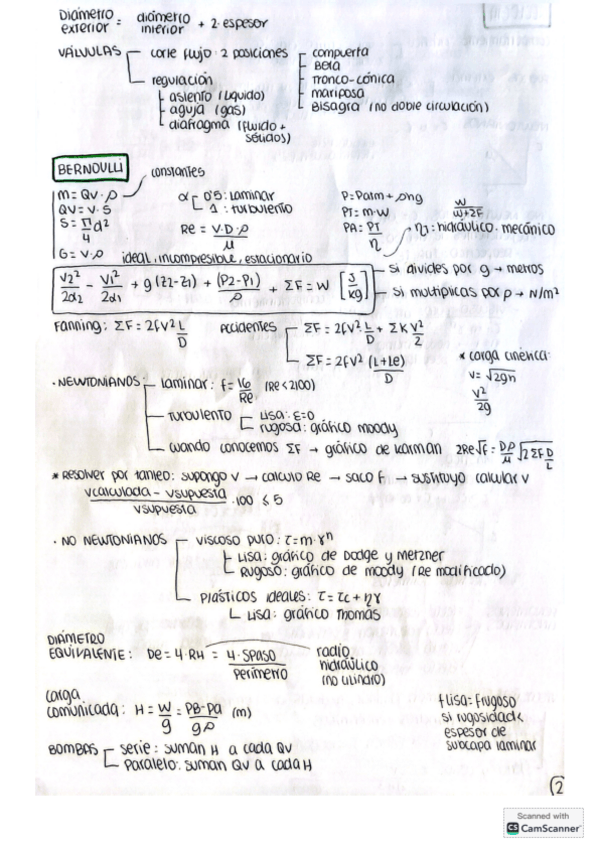 Diámetro exterior = diámetro interior + 2·espesor
VÁLVULAS
corte flujo: 2 posiciones
compuerta
Bola
tronco-cónica
mariposa
Bisagra (no doble circulación)
regulación
asiento (líquido)
aguja (gas)
diafragma (fluido + sólidos)
BERNOULLI
constantes
m = Qv·ρ
Qv = v·S
S = π/4 d²
G = v·ρ
α
0'5: laminar
1: turbulento
Re = v·D·ρ/μ
P = Patm + ρhg
PT = m·W
PA = PT/η
W/W+ΣF
η: hidráulico·mecánico
ideal, incompresible, estacionario
V2²/2α2 - V1²/2α1 + g(z2-z1) + (P2-P1)/ρ + ΣF = W [J/kg]
si divides por g → metros
si multiplicas por ρ → N/m²
Fanning: ΣF = 2fv² L/D
Accidentes
ΣF = 2fv² L/D + ΣK v²/2
ΣF = 2fv² (L+Le)/D
* carga cinética:
v = √2gh
v²/2g
· NEWTONIANOS
laminar: f = 16/Re (Re<2100)
turbulento
Lisa: ε=0
rugosa: gráfico moody
cuando conocemos ΣF → gráfico de karman 2Re√f = Dρ/μ √2ΣFD/L
* Resolver por tanteo: supongo v → calculo Re → saco f → sustituyo calcular v
vcalculada - vsupuesta/vsupuesta ·100 ≤ 5
· NO NEWTONIANOS
viscoso puro: τ=m·γⁿ
Lisa: gráfico de Dodge y Metzner
Rugoso: gráfico de moody (Re modificado)
Plásticos ideales: τ = τc + ηγ
Lisa: gráfico Thomas
DIÁMETRO EQUIVALENTE: De = 4·RH = 4·Spaso/Perímetro
radio hidráulico (no cilindro)
carga comunicada: H = W/g = PB-PA/gρ (m)
f lisa = f rugoso
si rugosidad <
espesor de
subcapa laminar
BOMBAS
serie: suman H a cada Qv
Paralelo: suman Qv a cada H
2
Scanned with
CS CamScanner